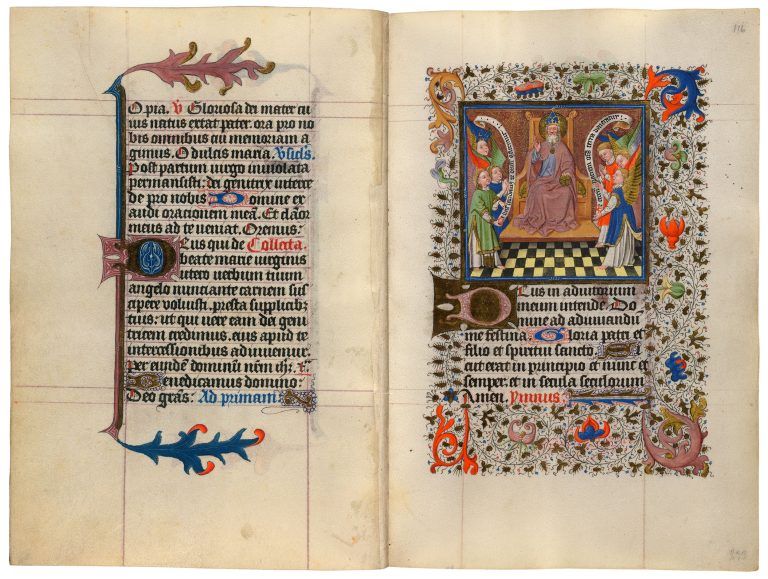 O pia. V Gloriosa dei mater cu
ius natus extat pater. ora pro no
bis omnibus qui memoriam a
gimus. O dulcis maria. Vsicls.
Post partum uirgo inuiolata
permansisti: dei genitrix interce
de pro nobis Domine ex
audi oracionem meā. Et clāor
meus ad te ueniat. Oremus:
Deus qui de Collecta.
beate marie uirginis
utero uerbum tuum
angelo nunciante carnem sus
cipere voluisti. presta supplicibꝫ
tuis: ut qui uere eam dei geni
tricem credimus. eius apud te
intercessionibus adiuuemur.
per eundē dominū nrm ihm
Benedicamus domino:
Deo gras: Ad primam
116
Deus in adiutorium
meum intende. Do
mine ad adiuuandū
me festina. Gloria patri et
filio et spiritui sancto. Si
cut erat in principio et nunc et
semper. et in secula seculorum
Amen. Ymnus: